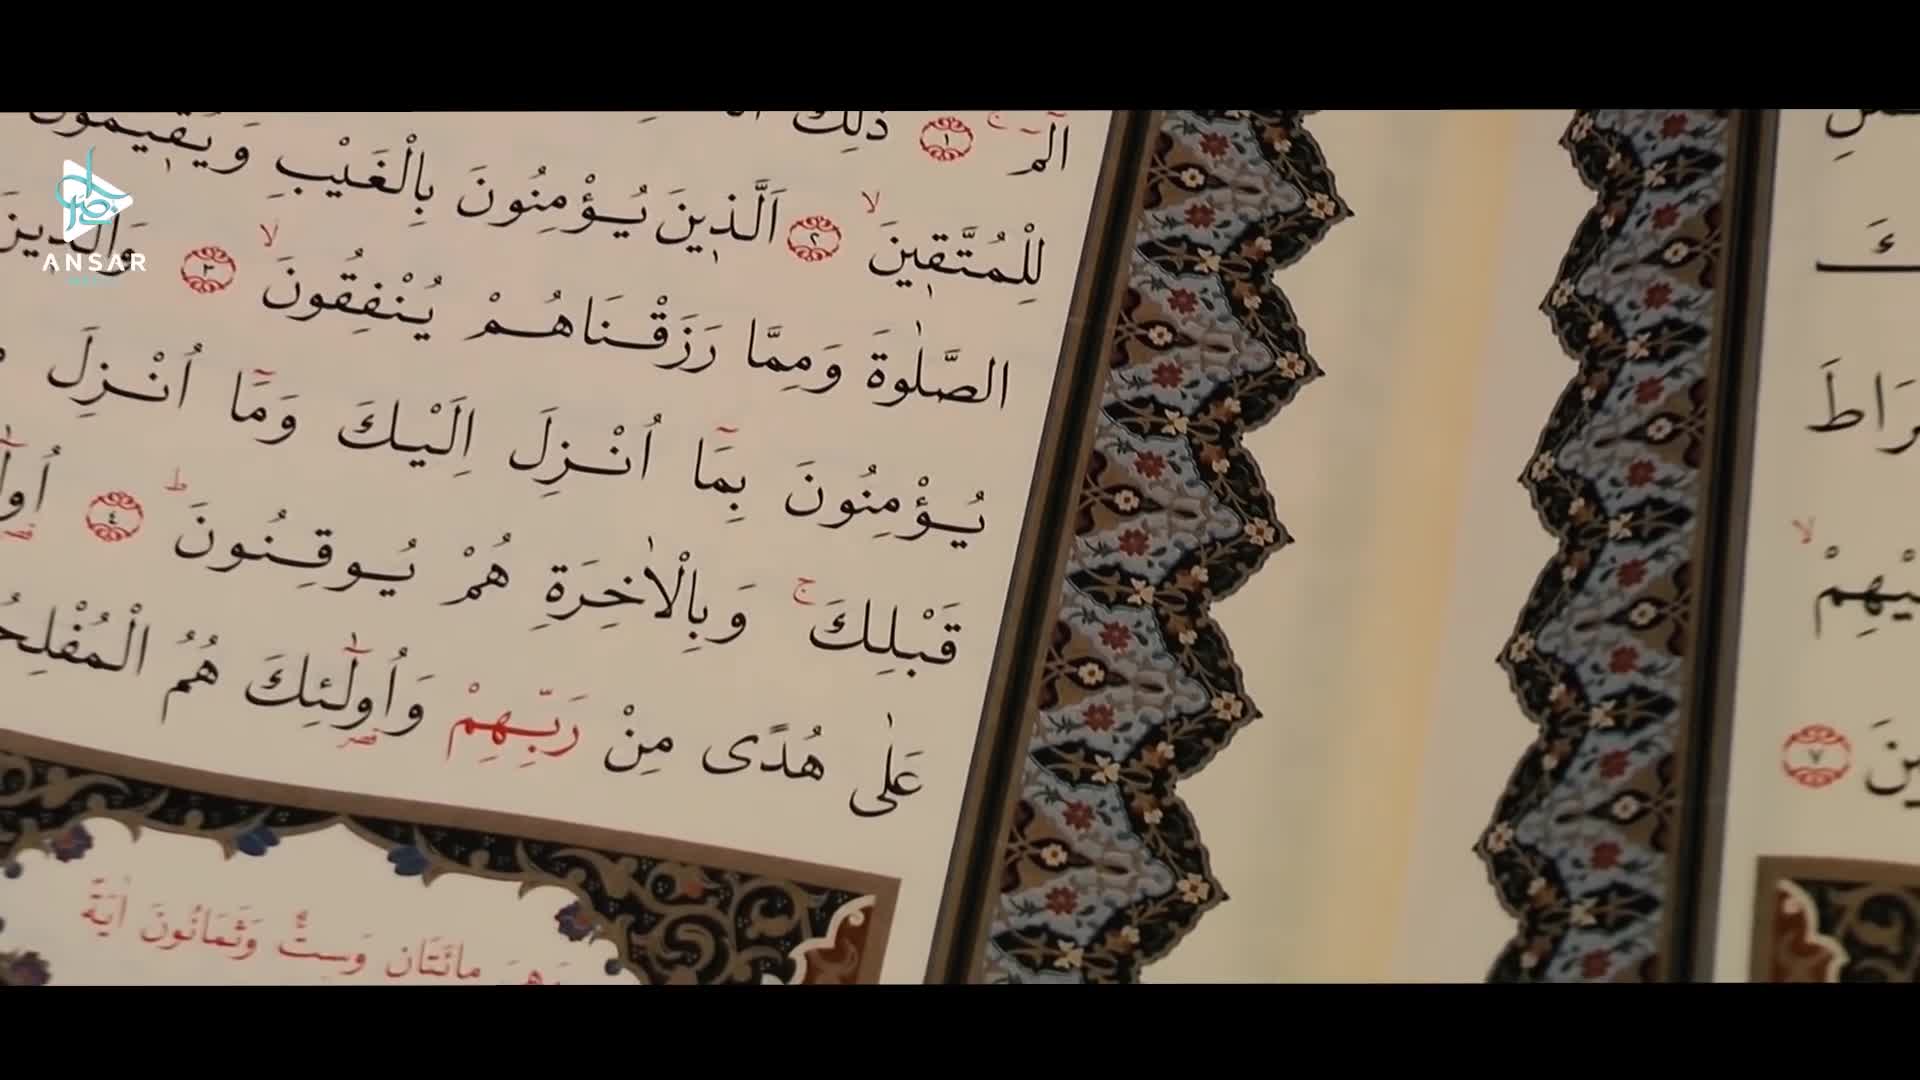 الٓمٓ ۚ ١ ذٰلِكَ
لِلْمُتَّقِينَ ۙ ٢ اَلَّذِينَ يُؤْمِنُونَ بِالْغَيْبِ وَيُقِيمُونَ
الصَّلٰوةَ وَمِمَّا رَزَقْنَاهُمْ يُنْفِقُونَ ۙ ٣ وَالَّذِينَ
يُؤْمِنُونَ بِمَٓا اُنْزِلَ اِلَيْكَ وَمَٓا اُنْزِلَ
قَبْلِكَ ۚ وَبِالْاٰخِرَةِ هُمْ يُوقِنُونَ ۜ ٤
عَلٰى هُدًى مِنْ رَبِّهِمْ وَاُولٰٓئِكَ هُمُ
وَهِيَ مِائَتَانِ وَسِتٌّ وَثَمَانُونَ اٰيَةً
٧
ANSAR